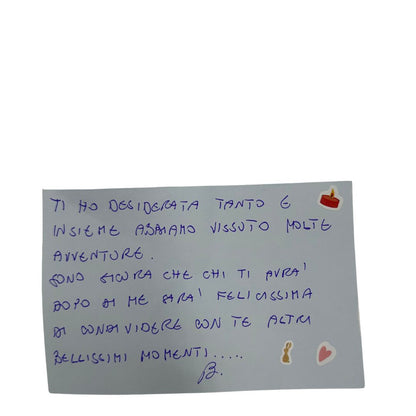 TI HO DESIDERATA TANTO E
INSIEME ABBIAMO VISSUTO MOLTE
AVVENTURE.
SONO SICURA CHE CHI TI AVRA'
DOPO DI ME SARA' FELICISSIMA
DI CONDIVIDERE CON TE ALTRI
BELLISSIMI MOMENTI.....
B.